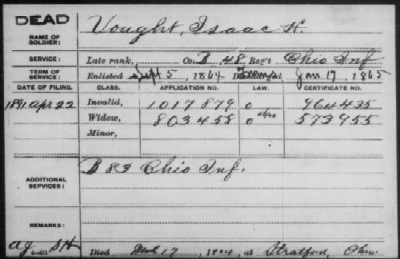 DEAD
NAME OF SOLDIER: Vought, Isaac H.
SERVICE: Late rank, Co. B 48 Reg't Ohio Inf
TERM OF SERVICE: Enlisted Sept 5, 1864 Jan. 17, 1865
DATE OF FILING. CLASS. APPLICATION NO. LAW. CERTIFICATE NO.
1891 Apr 22 Invalid, 1017879 0 964435
Widow, 803458 0 573955
Minor,
ADDITIONAL SERVICES: B 83 Ohio Inf.
REMARKS:
Died 17, at Stratford, Ohio